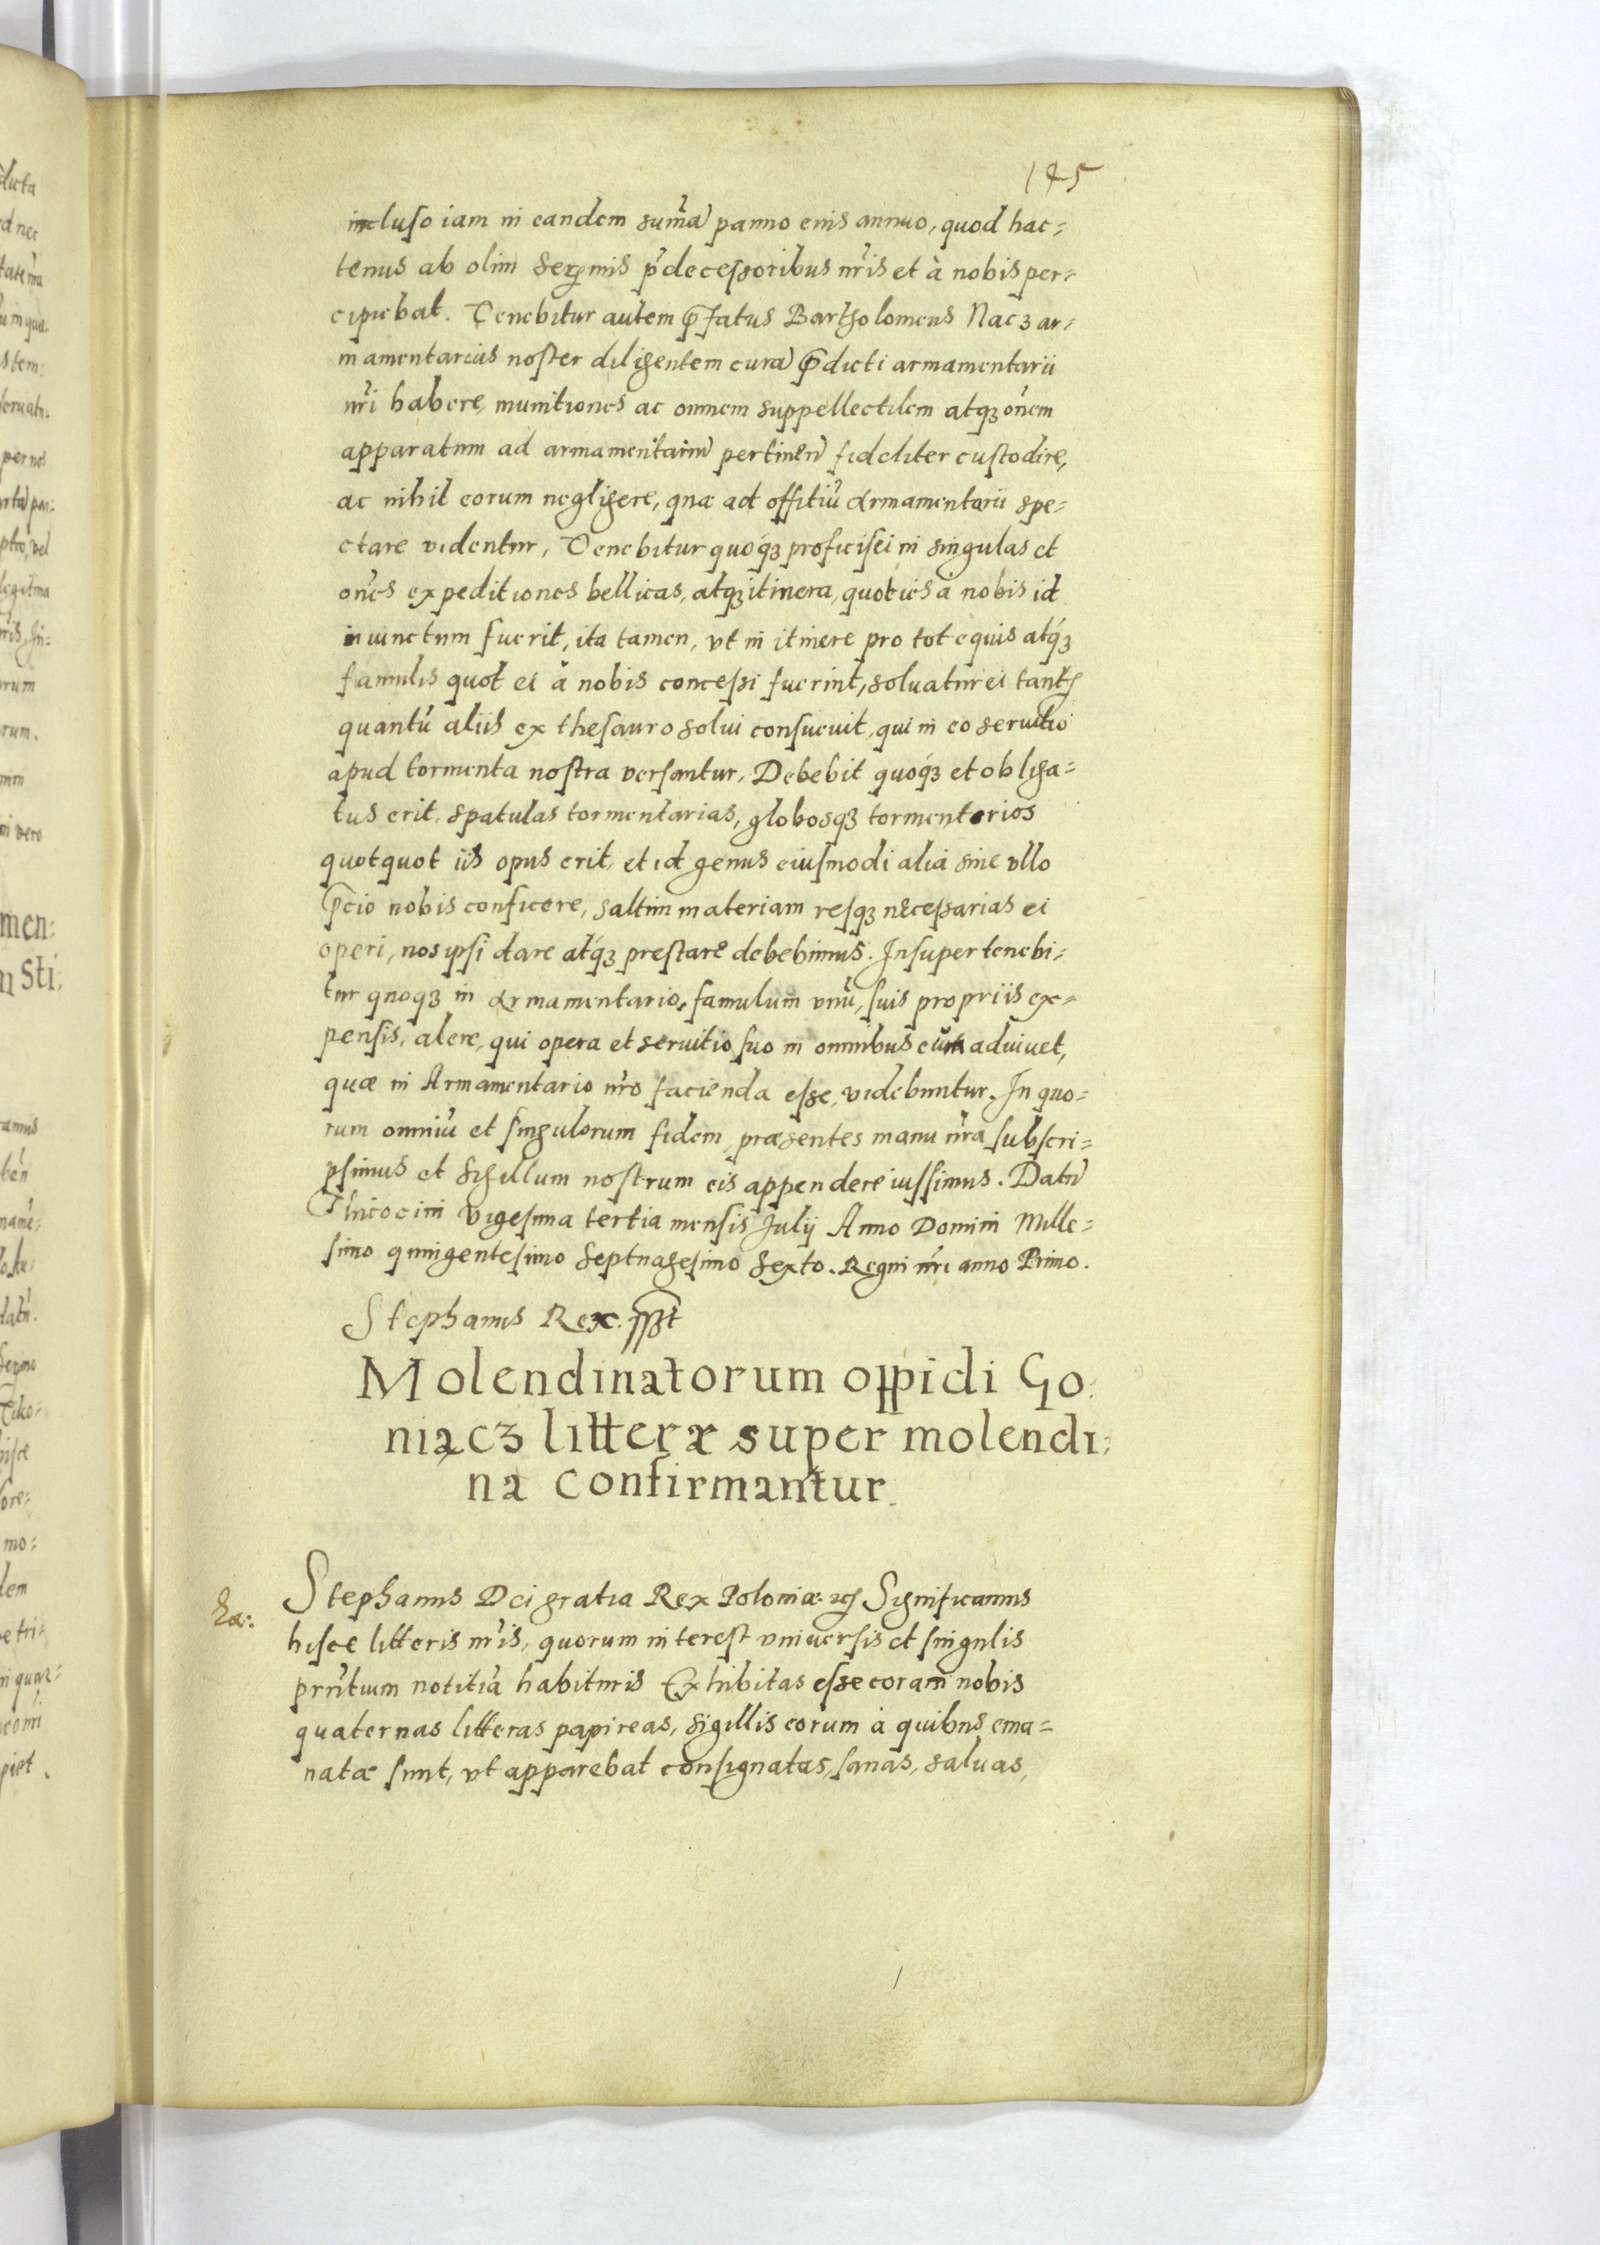 145
incluso iam in eandem sum̃ã panno eius annuo, quod hac=
tenus ab olim Serẽmis p̃decessoribus nr̃is et à nobis per=
cipiebat. Tenebitur autem p̃fatus Bartholomeus Nacz ar=
mamentarius noster diligentem curã p̃dicti armamentarii
nr̃i habere, munitiones ac omnem suppellectilem atqꝫ onẽm
apparatum ad armamentariũ pertineñ fideliter custodire,
ac nihil eorum negligere, quæ ad offitiũ Armamentarii spe=
ctare videntur, Tenebitur quoqꝫ proficisci in singulas et
onẽs expeditiones bellicas, atqꝫ itinera, quoties à nobis id
iniunctum fuerit, ita tamen, vt in itinere pro tot equis atqꝫ
famulis quot ei à nobis concessi fuerint, soluatur ei tantũ
quantũ aliis ex thesauro solui consueuit, qui in eo seruitio
apud tormenta nostra versantur, Debebit quoqꝫ et obliga=
tus erit, spatulas tormentarias, globosqꝫ tormentarios
quotquot iis opus erit, et id genus eiusmodi alia sine vllo
p̃cio nobis conficere, saltim materiam resqꝫ necessarias ei
operi, nos ipsi dare atqꝫ prestare debebimus. Insuper tenebi=
tur quoqꝫ in Armamentario, famulum vnũ, suis propriis ex=
pensis, alere, qui opera et seruitio suo in omnibus eum adiuuet,
quæ in Armamentario nr̃o facienda esse, videbuntur. In quo=
rum omniũ et singulorum fidem præsentes manu nr̃a subscri=
psimus et Sigillum nostrum eis appendere iussimus. Datũ
Thicocim Vigesima tertia mensis Julij Anno Domini Mille=
simo quingentesimo Septuagesimo Sexto. Regni nr̃i anno Primo.
Stephanus Rex. sspt
Molendinatorum oppidi Go:
niącz litteræ super molendi:
na confirmantur.
Stephanus Dei gratia Rex Poloniæ. etc Significamus
hisce litteris nr̃is, quorum interest vniuersis et singulis
prñtium notitiã habituris Exhibitas esse coram nobis
quaternas litteras papireas, sigillis eorum à quibus ema=
natæ sunt, vt apparebat consignatas, sanas, saluas,